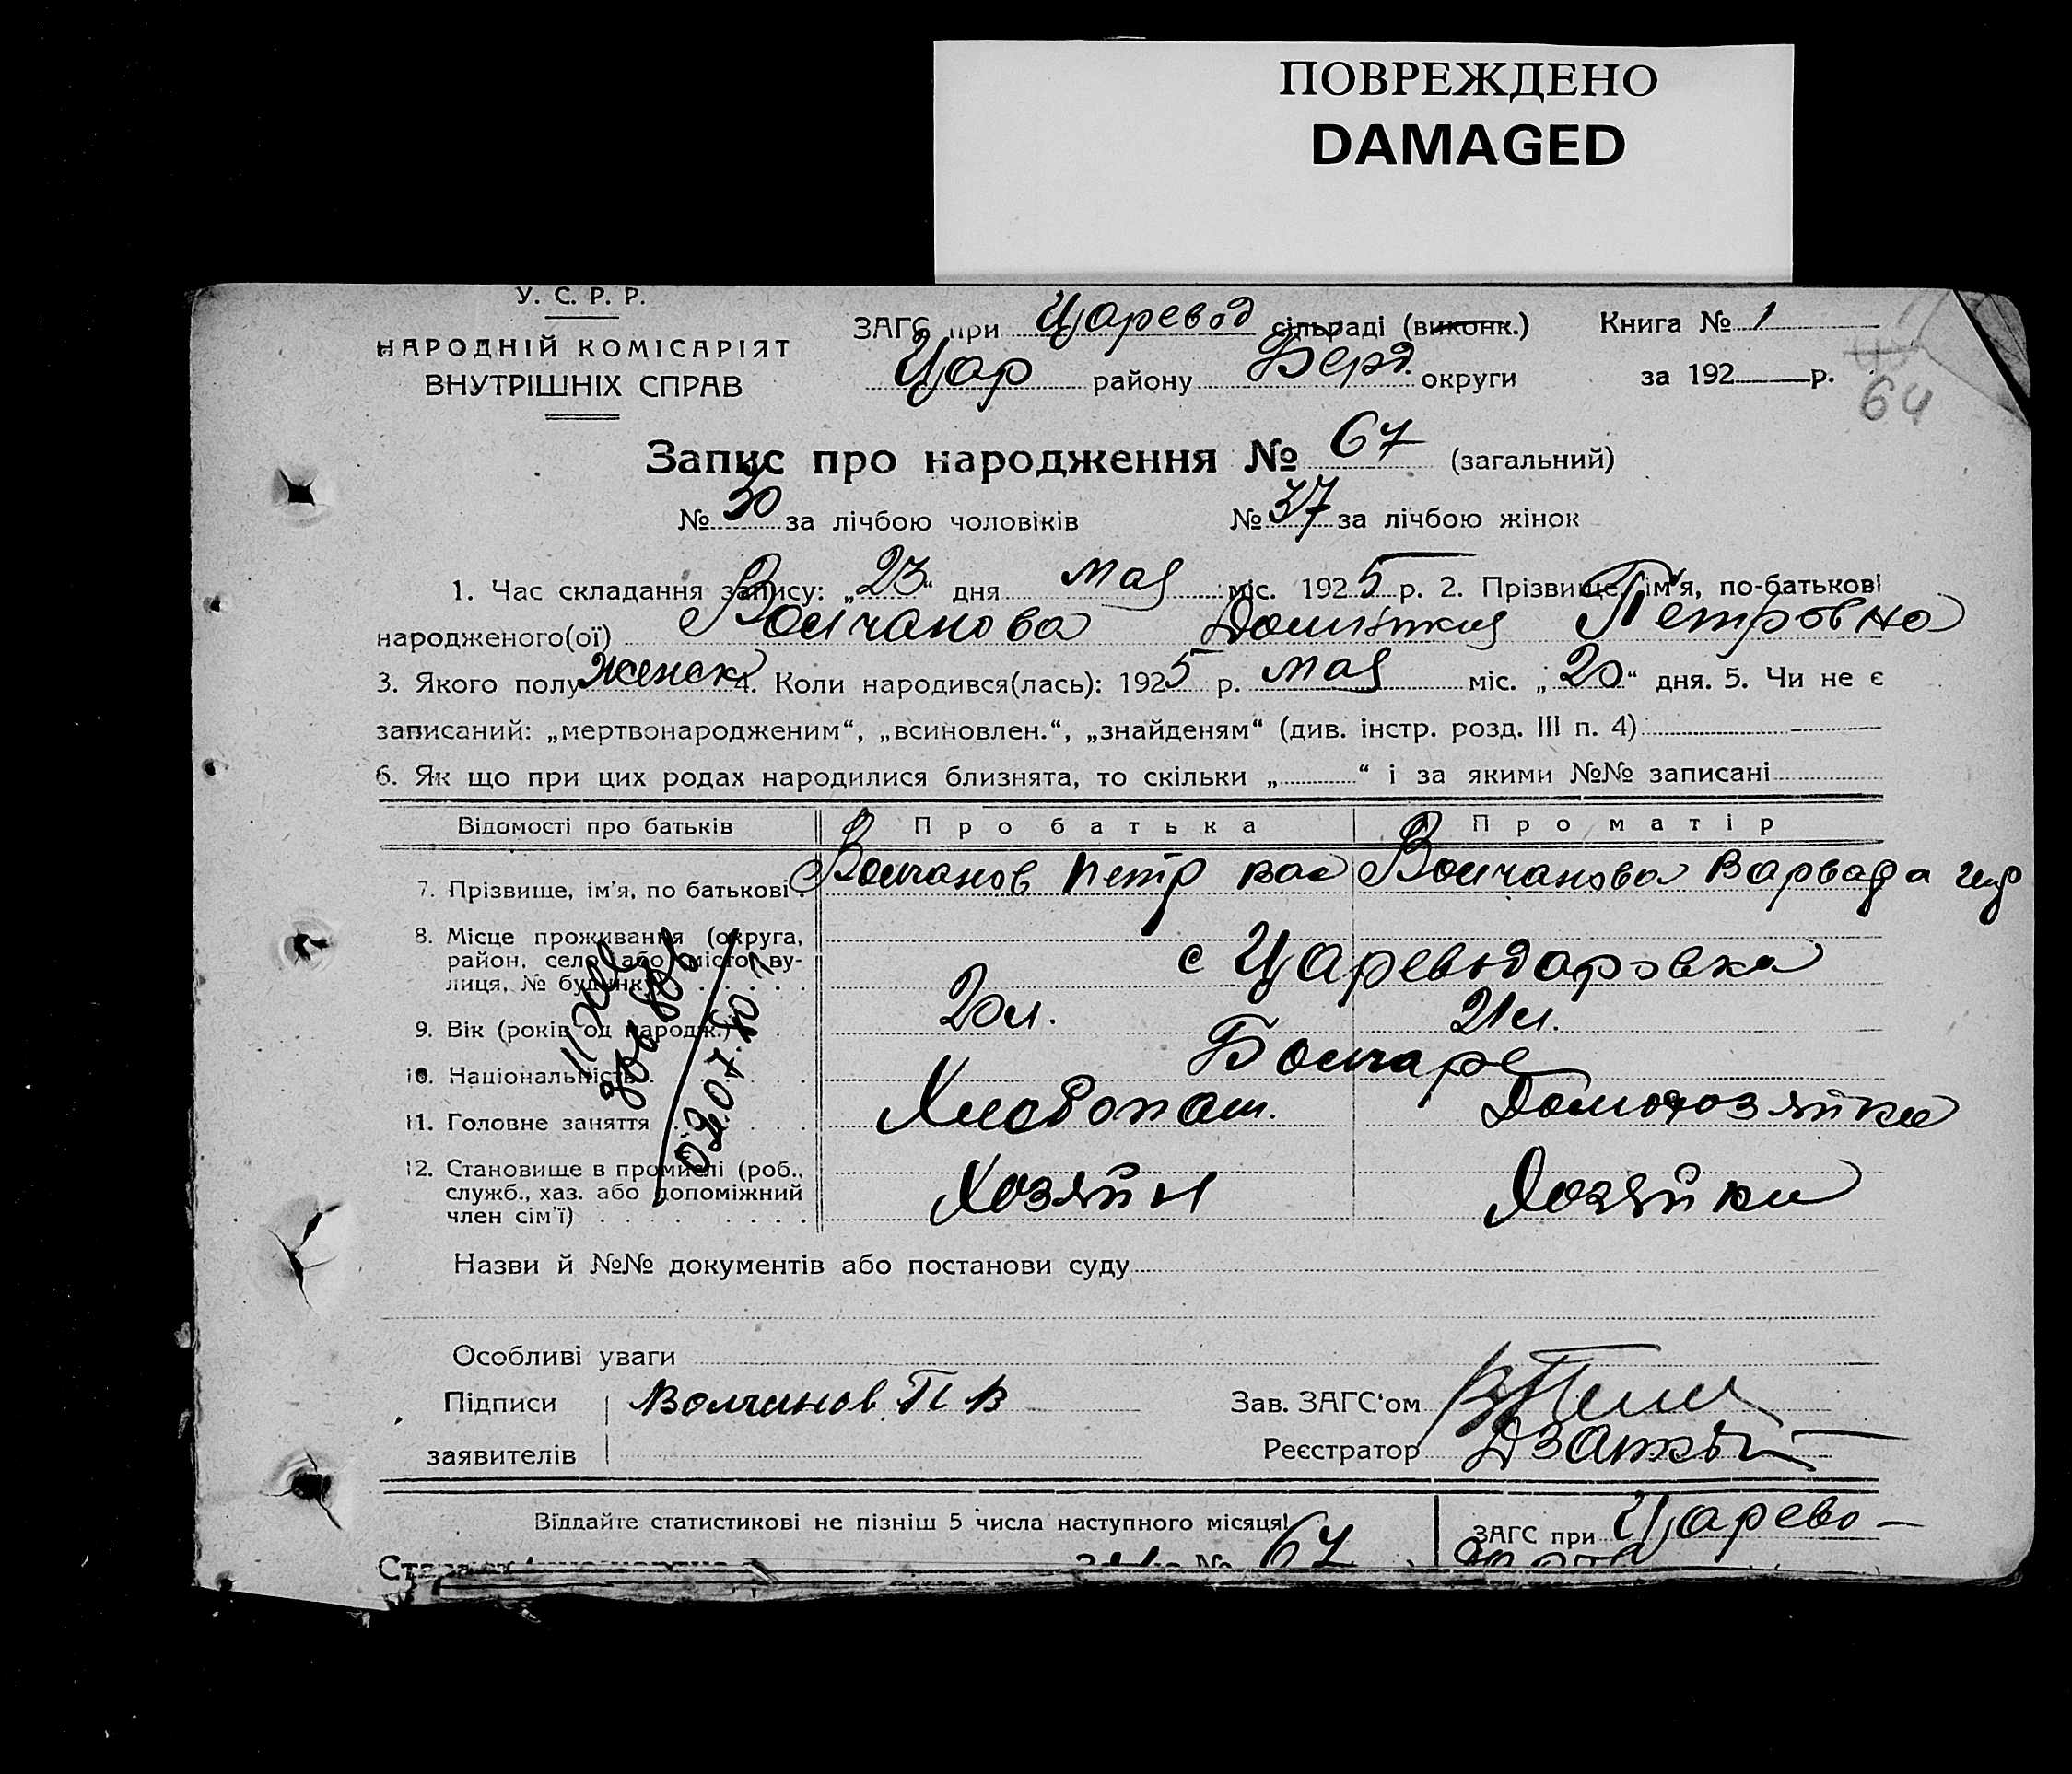 ПОВРЕЖДЕНО
DAMAGED
У. С. Р. Р.
НАРОДНІЙ КОМІСАРІЯТ
ВНУТРІШНІХ СПРАВ
ЗАГС при Царевод сільраді (виконк.) Книга № 1
Цар району Берд. округи за 192 р.
64
Запис про народження № 67 (загальний)
№ 30 за лічбою чоловіків № 37 за лічбою жінок
1. Час складання запису: „23“ дня мая міс. 1925 р. 2. Прізвище, ім'я, по-батькові
народженого(ої) Волчанова Петровна
3. Якого полу женск 4. Коли народився(лась): 1925 р. мая міс. „20“ дня. 5. Чи не є
записаний: „мертвонародженим“, „всиновлен.“, „знайденям“ (див. інстр. розд. III п. 4)
6. Як що при цих родах народилися близнята, то скільки „ “ і за якими №№ записані
Відомості про батьків Про батька Про матір
7. Прізвище, ім'я, по батькові. Волчанов Петр вас Волчанова Варвара
8. Місце проживання (округа,
район, село або місто, ву-
лиця, № будинку) с Цареводаровка
9. Вік (років од народж.) 20 л. 21 л.
10. Національність Болгаре
11. Головне заняття Хлебопаш. Домохозяйка
12. Становище в промислі (роб.,
служб., хаз. або допоміжний
член сім'ї) Хозяйн Хозяйка
Назви й №№ документів або постанови суду
Особливі уваги
Підписи Волчанов П В Зав. ЗАГС'ом
заявителів Реєстратор
Віддайте статистикові не пізніш 5 числа наступного місяця! ЗАГС при Царево-
№ 67